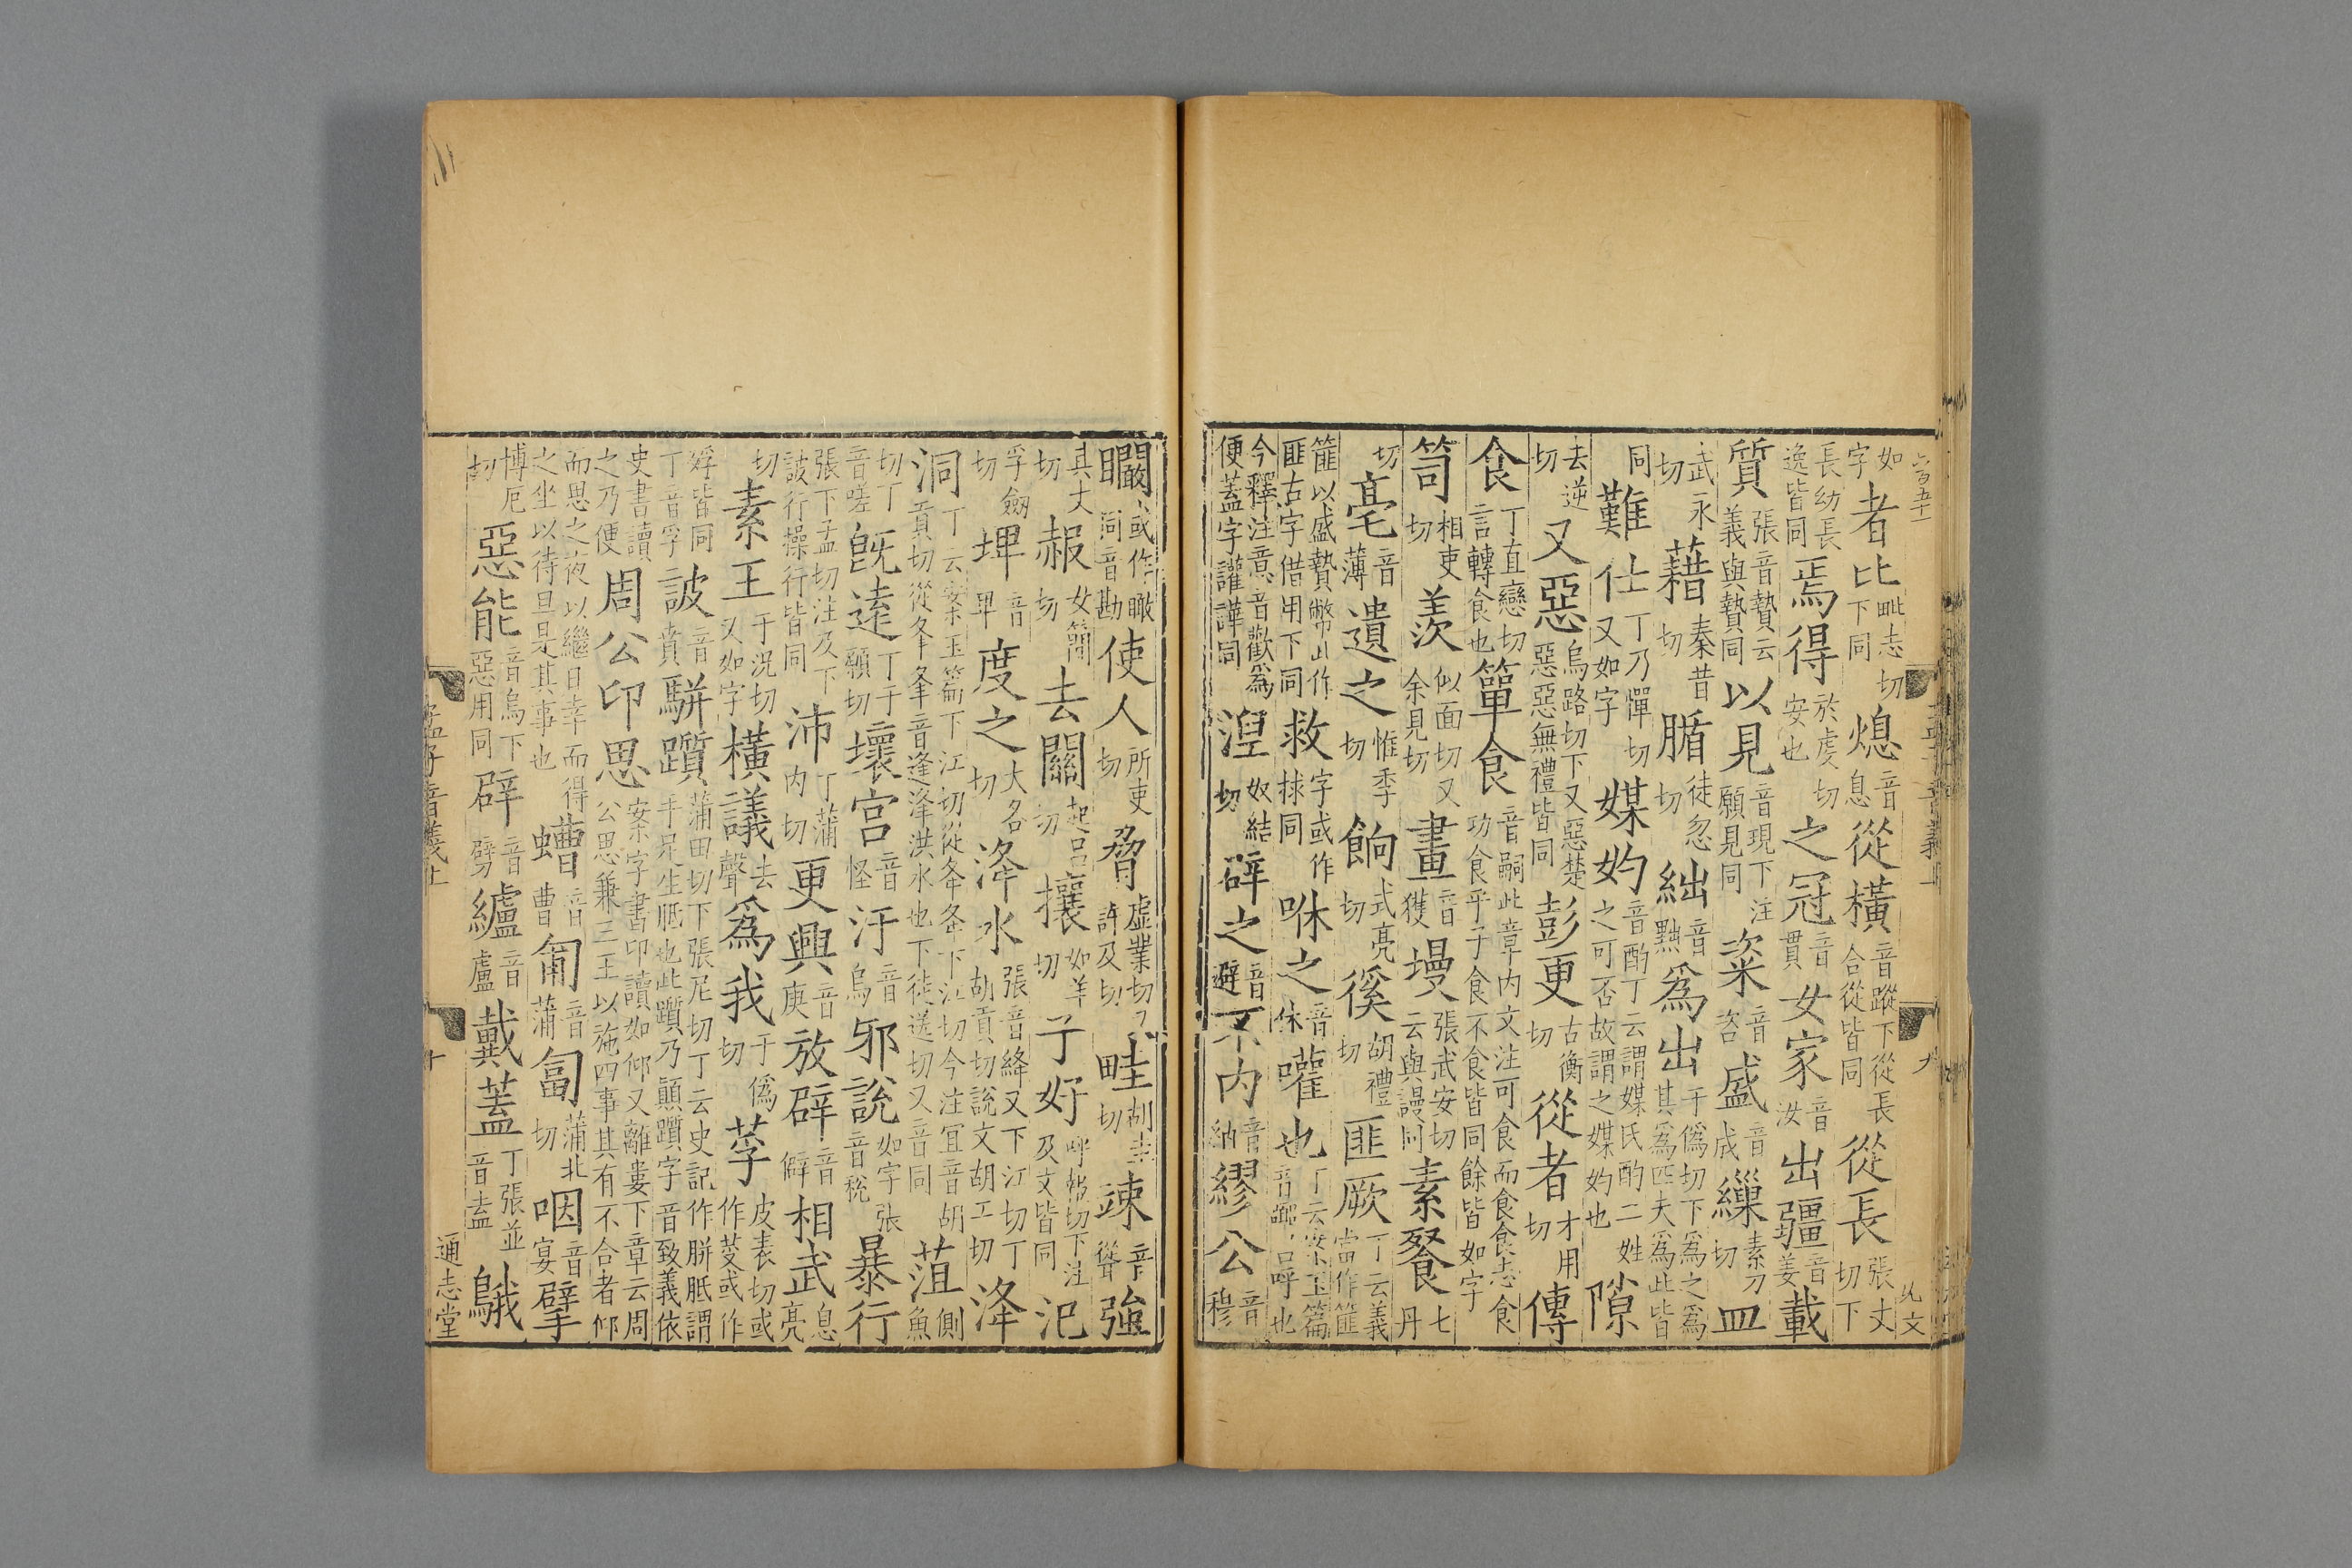 如字者比毗志切下同熄音息從橫音蹤下從長合從皆同從長張丈切下
長幼長逸皆同焉得於虔切安也之冠音貫女家音汝出疆音姜載
質張音贄云義與贄同以見音現下注願見同粢音咨盛音成繅素刀切皿
武永切藉秦昔切腯徒忽切絀音黜爲出于僞切下爲之爲其爲匹夫爲此皆
同難仕丁乃憚切又如字媒妁音酌丁云謂媒氏酌二姓之可否故謂之媒妁也隙
去逆切又惡烏路切下又惡楚惡惡無禮皆同彭更古衡切從者才用切傳
食丁直戀切言轉食也簞食音嗣此章内文注可食而食食志食功食乎子食不食皆同餘皆如字
笥相吏切羨似面切又余見切畫音獲墁張武安切云與謾同素餐七丹
切亳音薄遺之惟季切餉式亮切徯胡禮切匪厥丁云義當作篚
篚以盛贄幣此作匪古字借用下同救字或作捄同咻之音休嚾也丁云案玉篇音讙呼也
今釋注意音歡爲便蓋字讙譁同湼奴結切辟之音避不内音納繆公音穆
孟子音義上
九
矙或作瞰同音勘使人所吏切脅虛業切又許及切畦胡圭切竦音慫強
其丈切赧女簡切去關起呂切攘如羊切子好呼報切下注及文皆同汜
孚劒切埤音畀度之大各切洚水張音絳又下江切丁胡貢切說文胡工切洚
洞丁云案玉篇下江切從夅夅下江切今注宜音胡貢切從夆夆音逢洚洪水也下徒送切又音同菹側魚
切丁音嗟旣遠丁于願切壞宮音怪汙音烏邪說如字張音稅暴行
張下孟切注及下詖行操行皆同沛丁蒲内切更興音庚放辟音僻相武息亮
切素王于況切又如字橫議去聲爲我于僞切莩皮表切或作芟或作
殍皆同丁音孚詖音賁駢躓蒲田切下張尼切丁云史記作胼胝謂手足生胝也此躓乃顛躓字音致義依
史書讀之乃便周公卬思案字書卬讀如仰又離婁下章云周公思兼三王以施四事其有不合者仰
而思之夜以繼日幸而得之坐以待旦是其事也螬音曹匍音蒲匐蒲北切咽音宴擘
博厄切惡能音烏下惡用同辟音劈纑音盧戴蓋丁張並音盍鵝
孟子音義上
十
通志堂